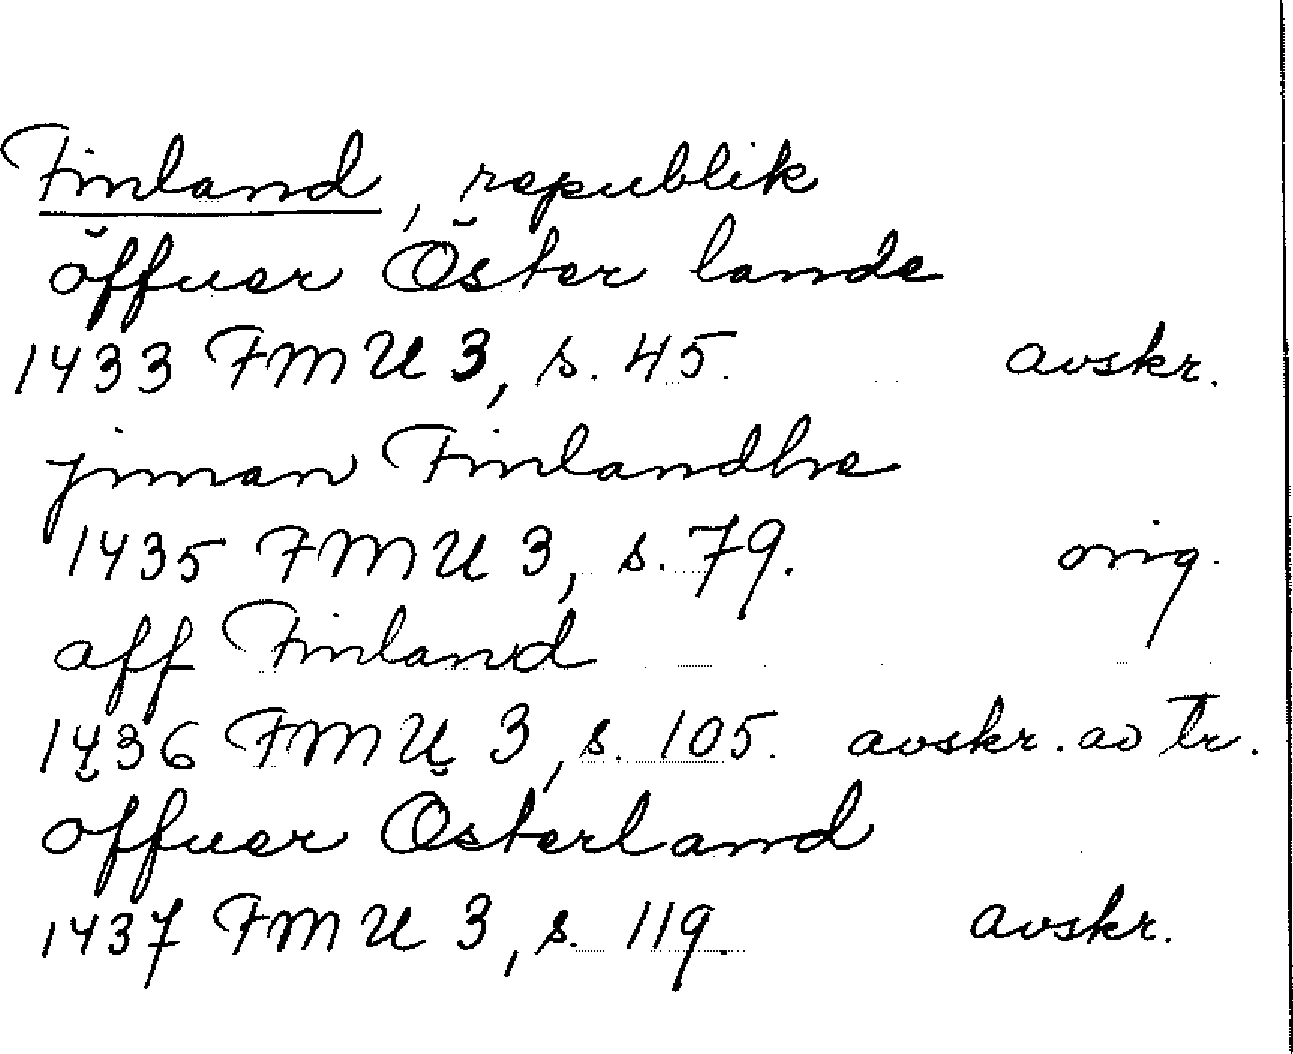 Finland, republik
öffuer Öster lande
1433 FMU 3, s. 45. avskr.
jnnan Finlandhe
1435 FMU 3, s. 79. orig.
aff Finland
1436 FMU 3, s. 105. avskr. av tr.
öffuer Österland
1437 FMU 3, s. 119. avskr.